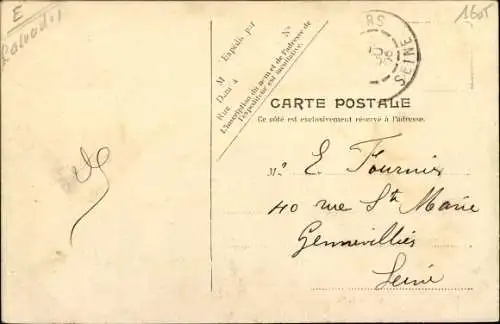 E
1605
Nº
Expédié par
M
Demt à
Rue
L'inscription du nom et de l'adresse de
l'expéditeur est facultative.
RS
SEINE
CARTE POSTALE
Ce côté est exclusivement réservé à l'adresse.
M. E. Fournix
40 rue Ste Marie
Gennevilliés
Seine